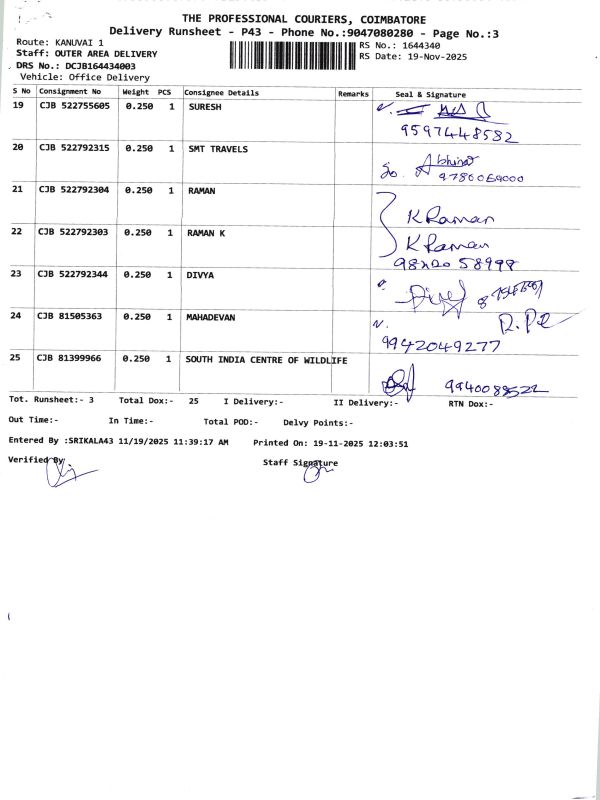 THE PROFESSIONAL COURIERS, COIMBATORE
Delivery Runsheet - P43 - Phone No.:9047080280 - Page No.:3
Route: KANUVAI 1
RS No.: 1644340
Staff: OUTER AREA DELIVERY
RS Date: 19-Nov-2025
DRS No.: DCJB164434003
Vehicle: Office Delivery
S No Consignment No Weight PCS Consignee Details Remarks Seal & Signature
19 CJB 522755605 0.250 1 SURESH
9597448582
20 CJB 522792315 0.250 1 SMT TRAVELS
Abhinav
21 CJB 522792304 0.250 1 RAMAN
K Raman
22 CJB 522792303 0.250 1 RAMAN K
K Raman
23 CJB 522792344 0.250 1 DIVYA
24 CJB 81505363 0.250 1 MAHADEVAN
9942049277
25 CJB 81399966 0.250 1 SOUTH INDIA CENTRE OF WILDLIFE
Tot. Runsheet:- 3 Total Dox:- 25 I Delivery:- II Delivery:- RTN Dox:-
Out Time:- In Time:- Total POD:- Delvy Points:-
Entered By :SRIKALA43 11/19/2025 11:39:17 AM Printed On: 19-11-2025 12:03:51
Verified By
Staff Signature